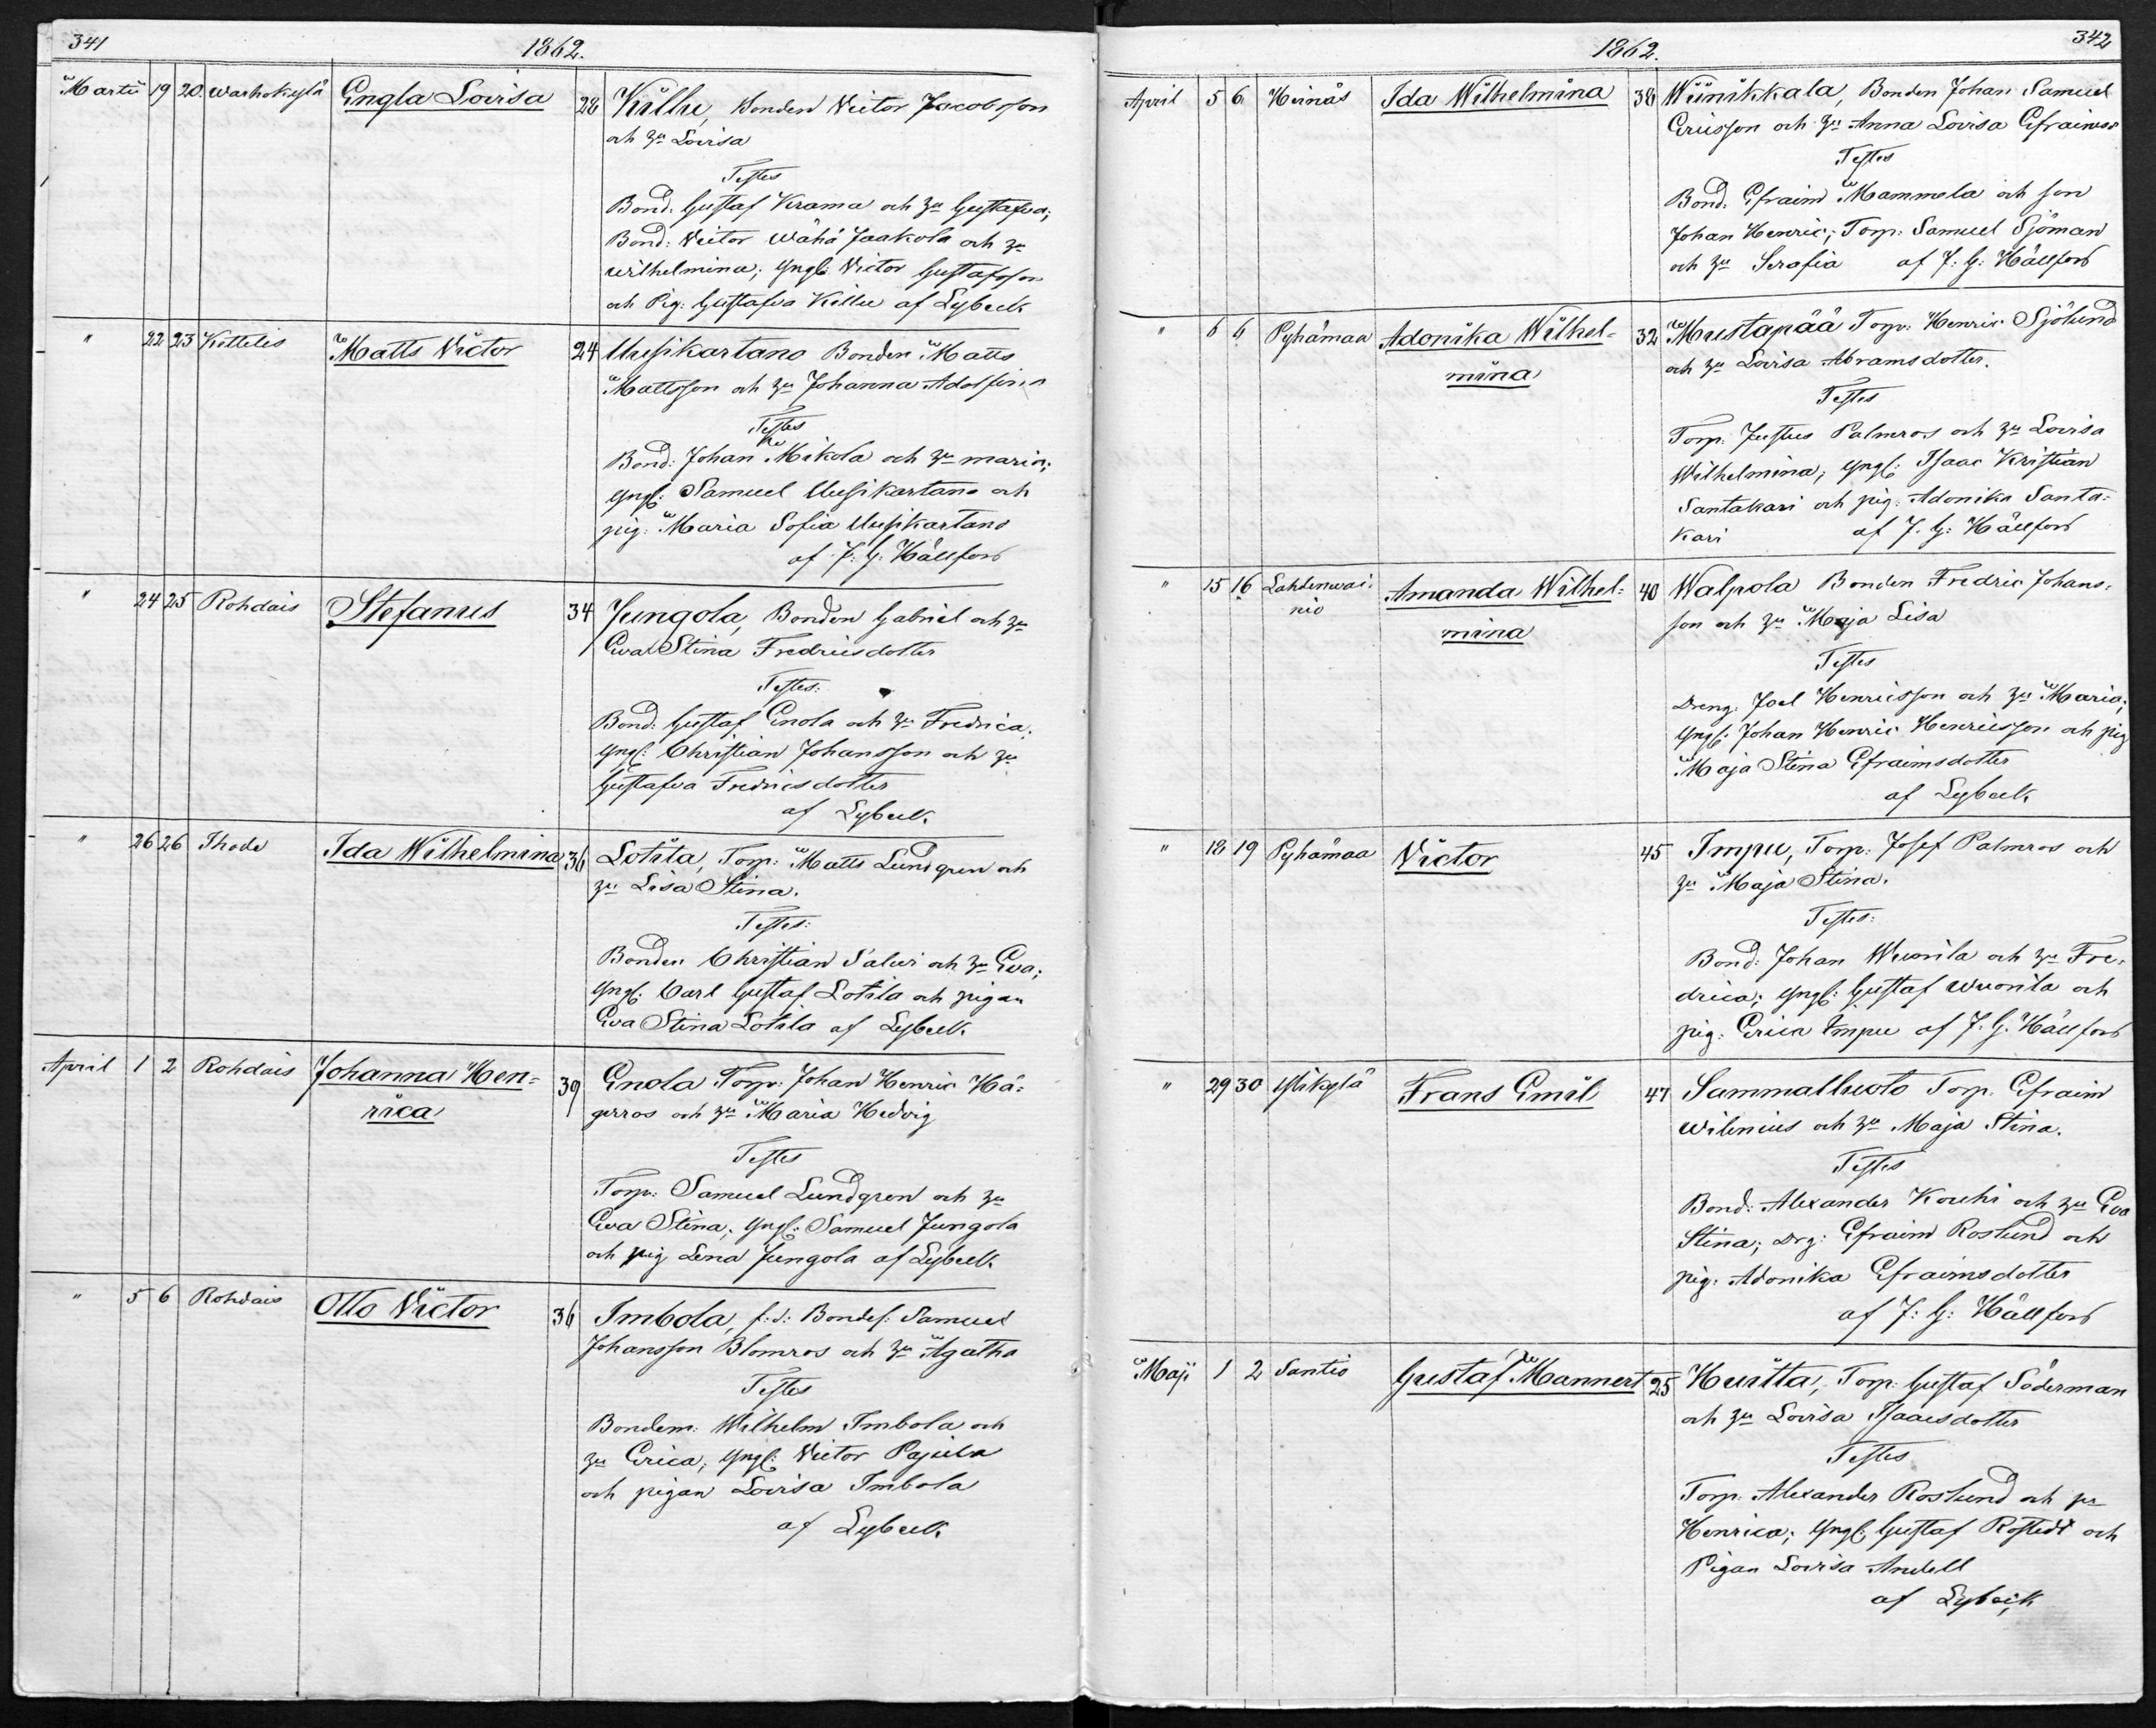 341
1862.
Martii 19 20. Warhokylä Engla Lovisa 28 Killu, Bonden Victor Jacobsson
och hu Lovisa
Testes
Bond. Gustaf Krama och hu Gustafva;
Bond: Victor Wähä Jaakola och hu
Wilhelmina; Yngl: Victor Gustafsson
och Pig: Gustafva Killu af Lybeck.
" 22 23 Kettelis Matts Victor 24 Uusikartano Bonden Matts
Mattsson och hu Johanna Adolfina
Testes
Bond: Johan Mikola och hu Maria;
Yngl: Samuel Uusikartano och
pig: Maria Sofia Uusikartano
af J: G: Hällfors
" 24 25 Rohdais Stefanus 34 Jungola, Bonden Gabriel och hu
Eva Stina Fredricsdotter
Testes:
Bond: Gustaf Enola och hu Fredrica.
Yngl: Christian Johansson och hu
Gustafva Fredricsdotter
af Lybeck.
" 26 26 Ihode Ida Wilhelmina 36 Lotila, Torp: Matts Lundgren och
hu Lisa Stina.
Testes:
Bonden Christian Salwi och hu Eva;
Yngl: Carl Gustaf Lotila och pigan
Eva Stina Lotila af Lybeck.
April 1 2 Rohdais Johanna Hen=
rica
39 Enola Torp: Johan Henric Hä=
gerros och hu Maria Hedvig
Testes
Torp: Samuel Lundgren och hu
Eva Stina; Yngl: Samuel Jungola
och pig Lena Jungola af Lybeck.
" 5 6 Rohdais Otto Victor 36 Imbola, f: d: Bondes: Samuel
Johansson Blomros och hu Agatha
Testes
Bondem: Wilhelm Imbola och
hu Erica; Yngl: Victor Pajula
och pigan Lovisa Imbola
af Lybeck
1862.
342
April 5 6 Heinäs Ida Wilhelmina 38 Wiinikkala, Bonden Johan Samuel
Ericsson och hu Anna Lovisa Efraimsd
Testes
Bond: Efraim Mammela och son
Johan Henric; Torp: Samuel Sjöman
och hu Serafia af J: G: Hällfors
" 6 6 Pyhämaa Adonika Wilhel=
mina
32 Mustapää Torp: Henric Sjölund
och hu Lovisa Abramsdotter.
Testes
Torp: Justus Palmros och hu Lovisa
Wilhelmina; Yngl: Isaac Kristian
Santakari och pig: Adonika Santa=
kari af J. G: Hällfors
" 15 16 Lahdenwai=
nio
Amanda Wilhel=
mina
40 Walpola Bonden Fredric Johans=
son och hu Maja Lisa
Testes
Dreng: Joel Henricsson och hu Maria;
Yngl: Johan Henric Henricsson och pig
Maja Stina Efraimsdotter
af Lybeck.
" 18 19 Pyhämaa Victor 45 Impu, Torp: Josef Palmros och
hu Maja Stina.
Testes:
Bond: Johan Wuorila och hu Fre=
drica; Yngl: Gustaf Wuorila och
pig: Erica Impu af J. G. Hällfors
" 29 30 Ylikylä Frans Emil 47 Sammalluoto Torp. Efraim
Wilenius och hu Maja Stina.
Testes
Bond: Alexander Kouhi och hu Eva
Stina; Drg: Efraim Roslund och
pig: Adonika Efraimsdotter
af J: G: Hällfors
Maji 1 2 Santio Gustaf Mannert 25 Huitta, Torp: Gustaf Söderman
och hu Lovisa Isaacsdotter
Testes
Torp: Alexander Roslund och hu
Henrica; Yngl: Gustaf Rostedt och
Pigan Lovisa Andell
af Lybeck